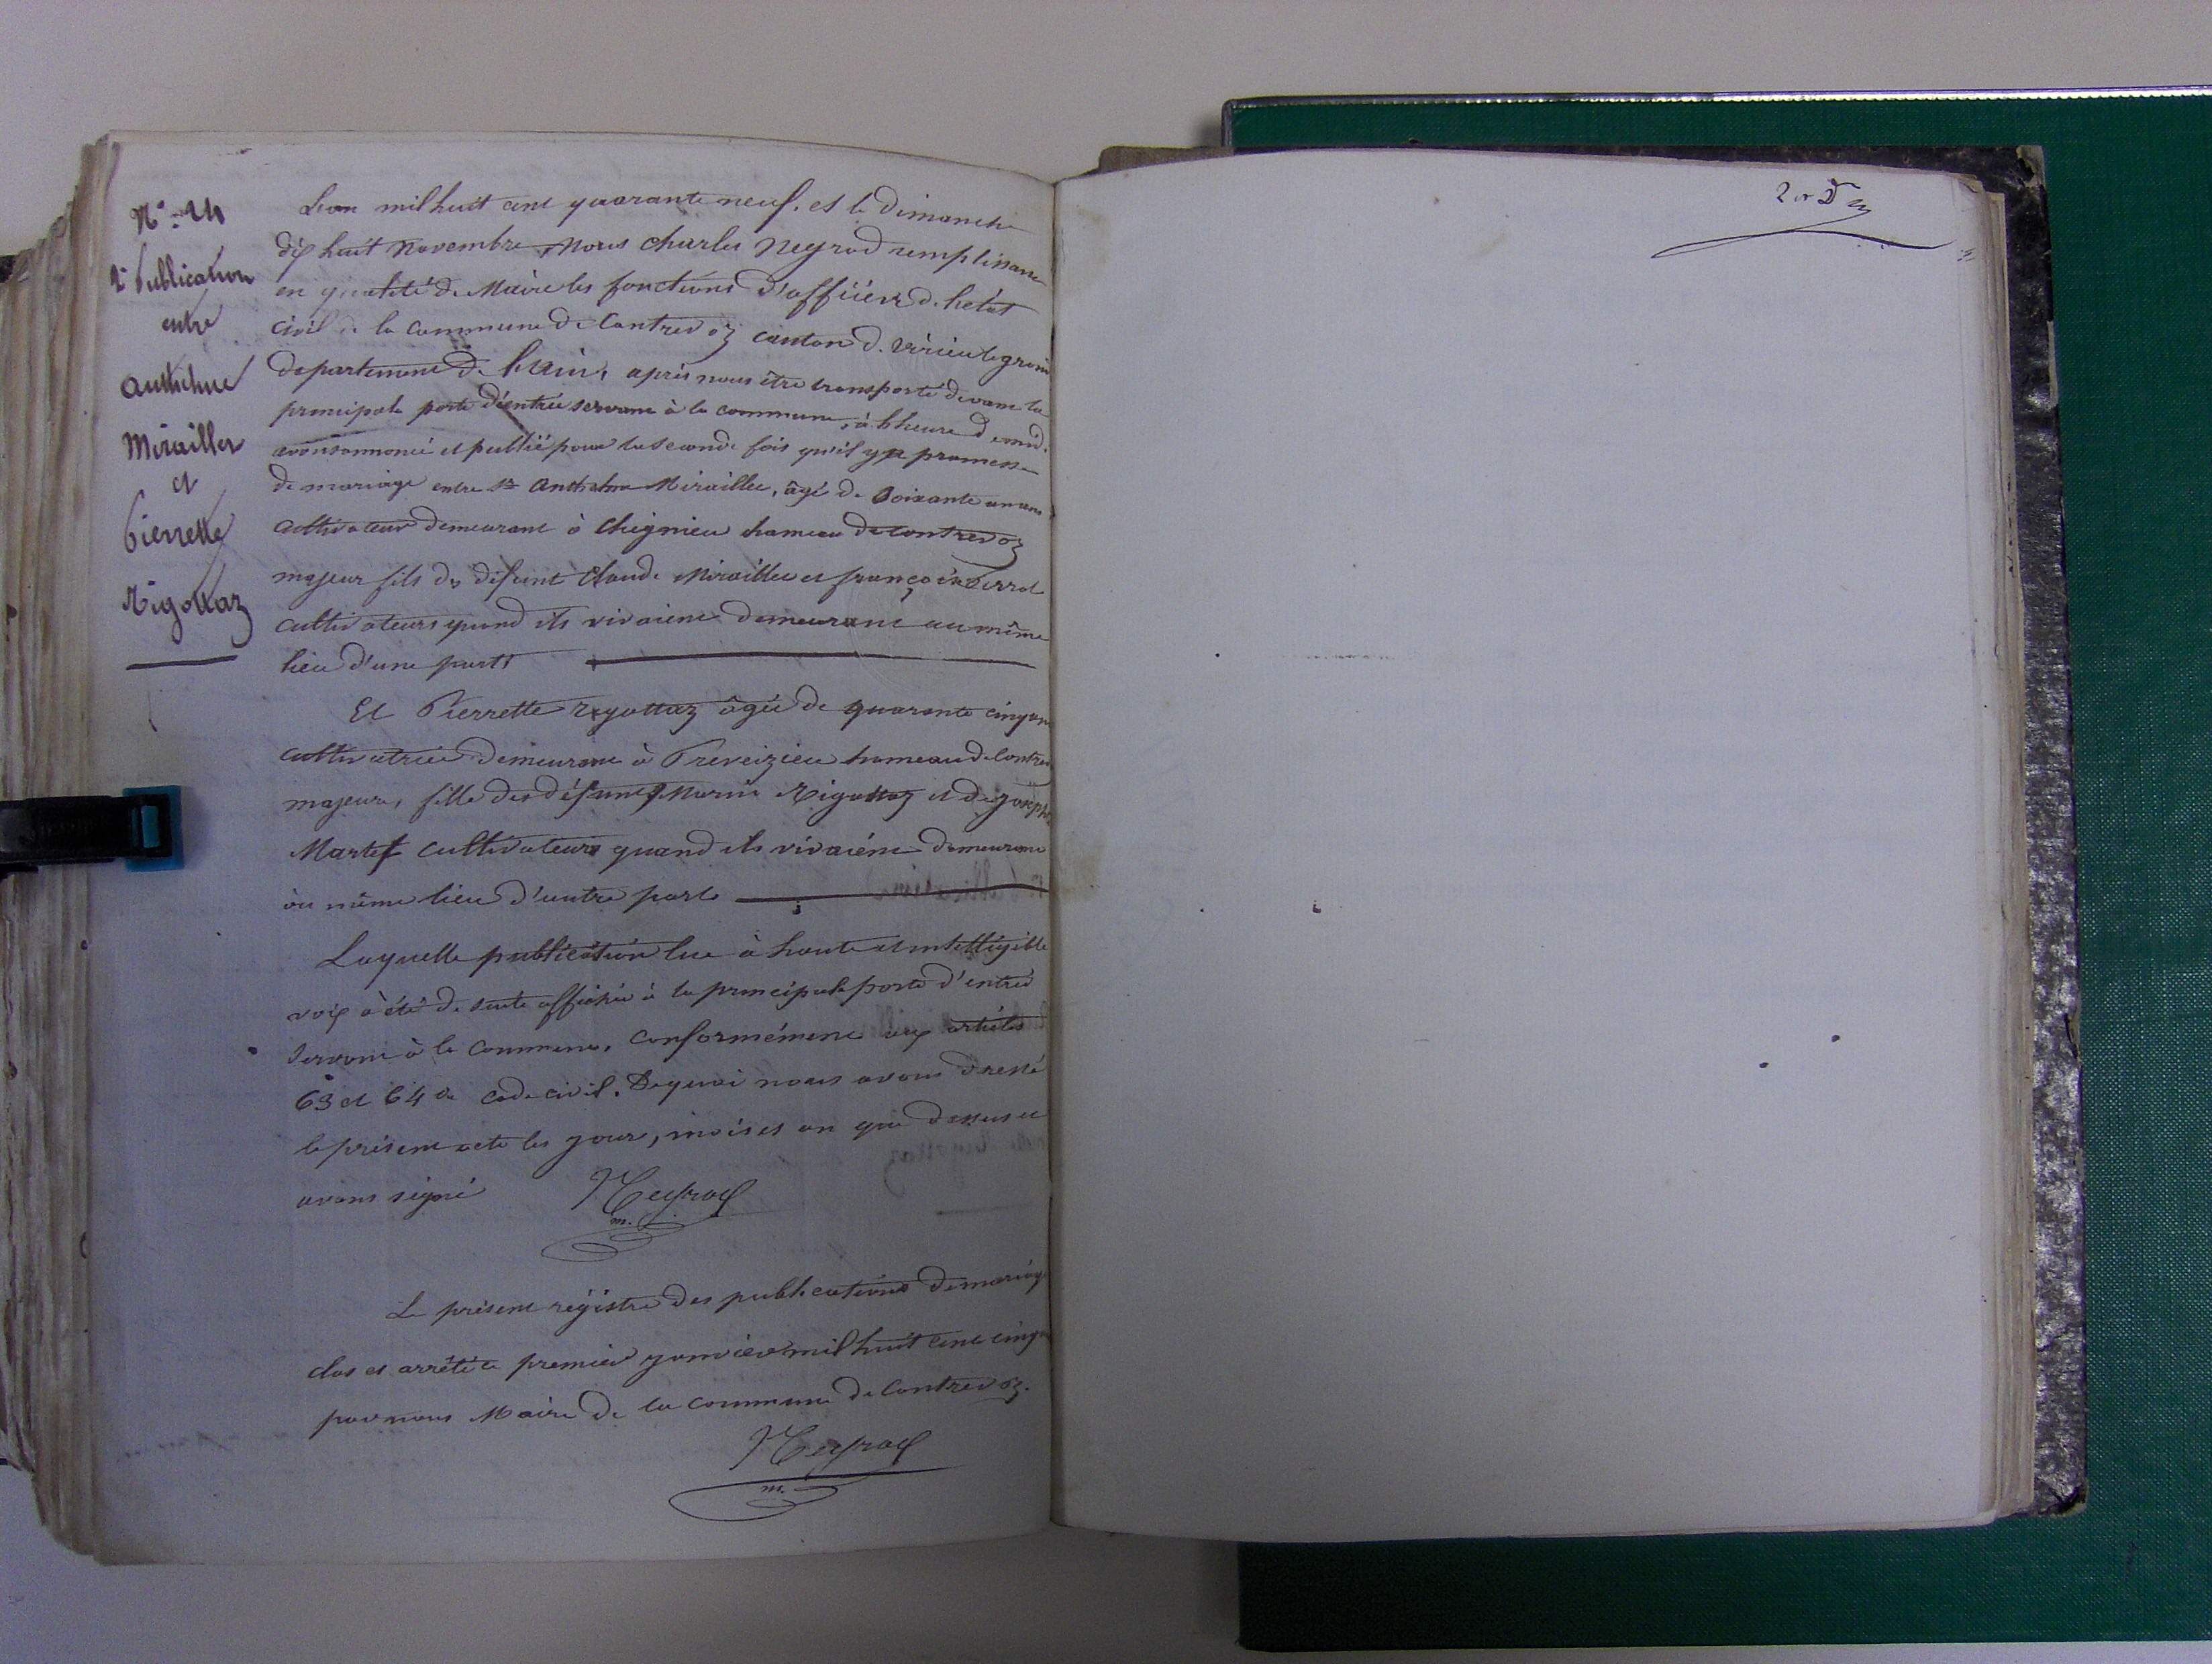 N° 24
2e Publication
entre
Anthelme
Mirailler
et
Pierrette
Rigottaz
L'an mil huit cent quarante neuf, et le Dimanche
dix huit Novembre, Nous Charles Neyrod remplissant
en qualité de Maire les fonctions d'officier de l'etat
civil de la commune de Contrevoz canton de virieu le grand
departement de l'Ain, après nous être transporté devant la
principale porte d'entrée servant à la commune, à l'heure de midi
avons annoncé et publié pour la seconde fois qu'il y a promesse
de mariage entre sr Anthelme Miraillee, âgé de Soixante un ans
cultivateur demeurant à Chignieu hameau de Contrevoz
majeur fils de défunt Claude Miraillee et françoise Perrot
cultivateurs quand ils vivaient demeurant au même
lieu d'une part
Et Pierrette rigottaz âgée de quarante cinq ans
cultivatrice demeurant à Preveizieu hameau de Contrev
majeure, fille des défunts Marin Rigottaz et de Josephte
Martet cultivateurs quand ils vivaient demeurant
au même lieu d'autre part
Laquelle publication lue à haute et intelligible
voix à été de suite affichée à la principale porte d'entrée
servant à la commune, conformément aux articles
63 et 64 du code civil. De quoi nous avons dressé
le présent acte les jour, mois et an que dessus et
avons signé Neyrod
m.
Le présent régistre des publications de mariage
clos et arrété le premier janvier mil huit cent cinqu
par nous Maire de la commune de Contrevoz.
Neyrod
m.